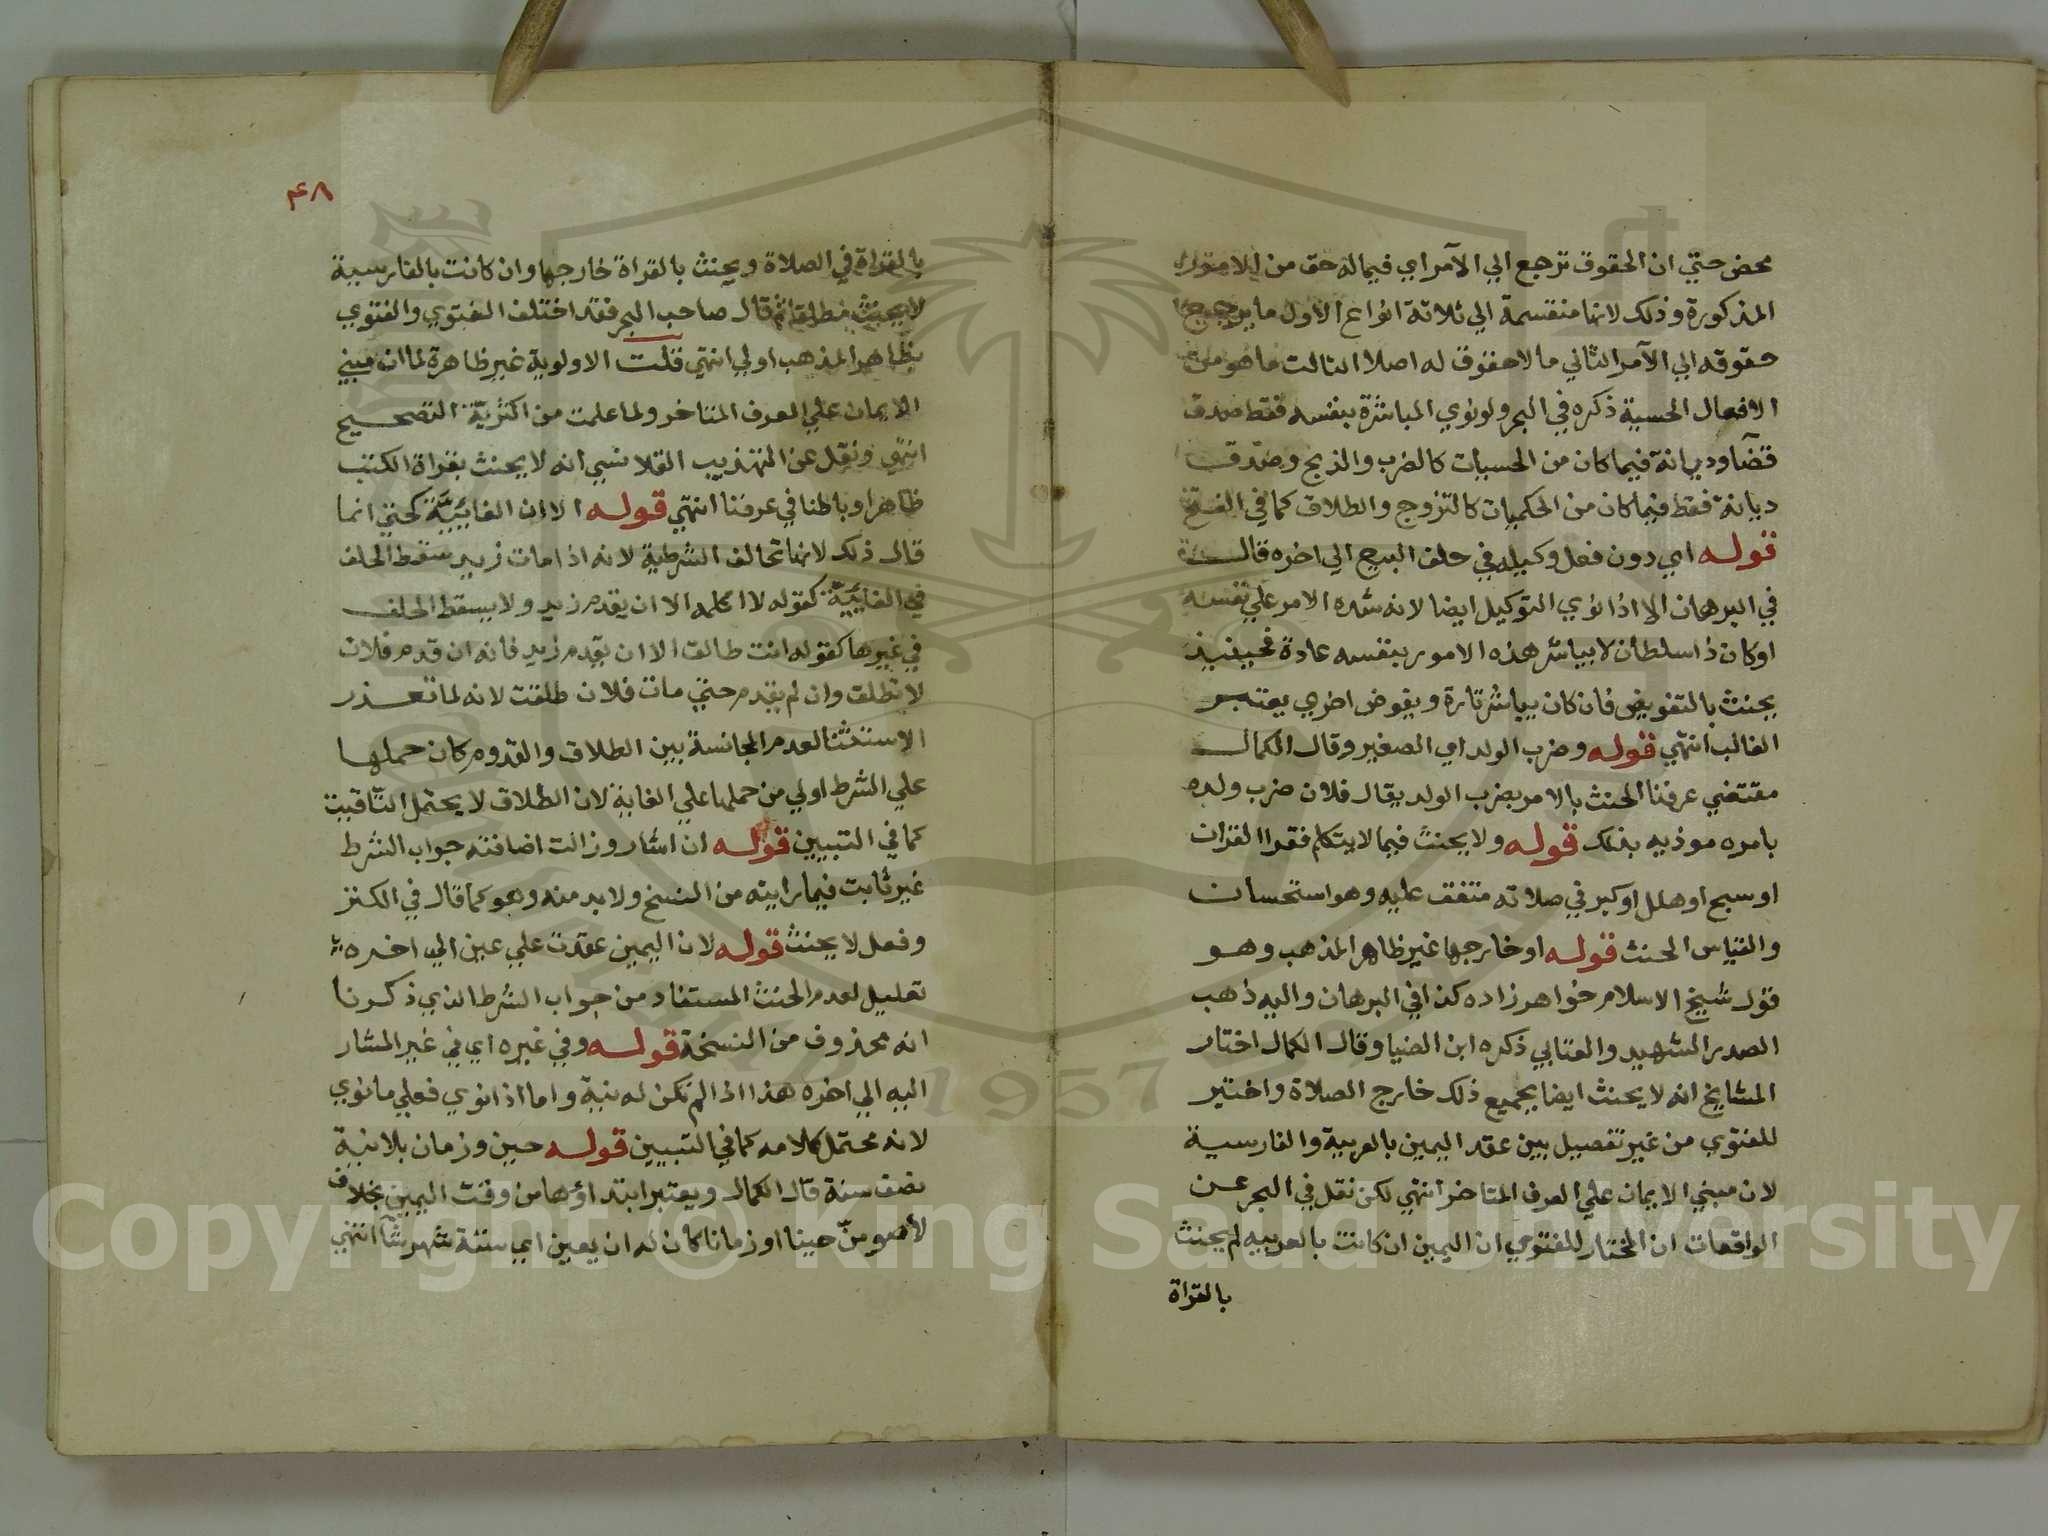 محض حتي ان الحقوق ترجع الي الآمر اي فيما له حق من الامور
المذكورة وذلك لانها منقسمة الي ثلاثة انواع الاول ما يرجع
حقوقه الي الآمر الثاني ما لا حقوق له اصلا الثالث ما هو من
الافعال الحسية ذكره في البحر ولو نوي المباشرة بنفسه فقط صدق
قضآ وديانة فيما كان من الحسيات كالضرب والذبح وصدق
ديانة فقط فيما كان من الحكميات كالتزوج والطلاق كما في الفتح
قوله اي دون فعل وكيله في حلف البيع الي اخره قال
في البرهان الا اذا نوي التوكيل ايضا لانه شدد الامر علي نفسه
او كان ذا سلطان لا يباشر هذه الامور بنفسه عادة فحينئذ
يحنث بالتفويض فان كان يباشر تارة ويفوض اخري يعتبر
الغالب انتهي قوله وضرب الولد اي الصغير وقال الكمال
مقتضي عرفنا الحنث بالامر بضرب الولد يقال فلان ضرب ولده
بامره موذبه بذلك قوله ولا يحنث فيما لا يتكلم فقرا القران
او سبح او هلل او كبر في صلاته متفق عليه وهو استحسان
والقياس الحنث قوله او خارجها غير ظاهر المذهب وهو
قول شيخ الاسلام خواهر زاده كذا في البرهان واليه ذهب
الصدر الشهيد والعتابي ذكره ابن الضيا وقال الكمال اختار
المشايخ انه لا يحنث ايضا بجميع ذلك خارج الصلاة واختير
للفتوي من غير تفصيل بين عقد اليمين بالعربية والفارسية
لان مبني الايمان علي العرف المتاخر انتهي لكن نقل في البحر عن
الواقعات ان المختار للفتوي ان اليمين ان كانت بالعربيه لم يحنث
بالقراة
٤٨
بالقراة في الصلاة ويحنث بالقراة خارجها وان كانت بالفارسية
لا يحنث مطلقا ثم قال صاحب البحر فقد اختلف الفتوي والفتوي
بظاهر المذهب اولي انتهي قلت الاولوية غير ظاهرة لما ان مبني
الايمان علي العرف المتاخر ولما علمت من اكثرية التصحيح
انتهي ونقل عن التهذيب القلانسي انه لا يحنث بقراة الكتب
ظاهرا وباطنا في عرفنا انتهي قوله الا ان الغائيّة كحتي انما
قال ذلك لانها تخالف الشرطية لانه اذا مات زيد سقط الحلف
في الغايّة كقوله لا اكلمه الا ان يقدم زيد ولا يسقط الحلف
في غيرها كقوله انت طالق الا ان يقدم زيد فانه ان قدم فلان
لا تطلق وان لم يقدم حتي مات فلان طلقت لانه لما تعذر
الاستثنا لعدم المجانسة بين الطلاق والقدوم كان حملها
علي الشرط اولي من حملها علي الغاية لان الطلاق لا يحتمل التاقيت
كما في التبيين قوله ان اشار وزالت اضافته جواب الشرط
غير ثابت فيما رايته من النسخ ولا بد منه وهو كما قال في الكنز
وفعل لا يحنث قوله لان اليمين عقدت علي عين الي اخره
تعليل لعدم الحنث المستفاد من جواب الشرط الذي ذكرنا
انه محذوف من النسخة قوله وفي غيره اي في غير المشار
اليه الي اخره هذا اذا لم تكن له نية واما اذا نوي فعلي ما نوي
لانه محتمل كلامه كما في التبيين قوله حين وزمان بلا نية
نصف سنة قال الكمال ويعتبر ابتداؤها من وقت اليمين بخلاف
لأصومنّ حينا او زمانا كان له ان يعين اي ستة شهر شآ انتهي
1957
Copyright © King Saud University